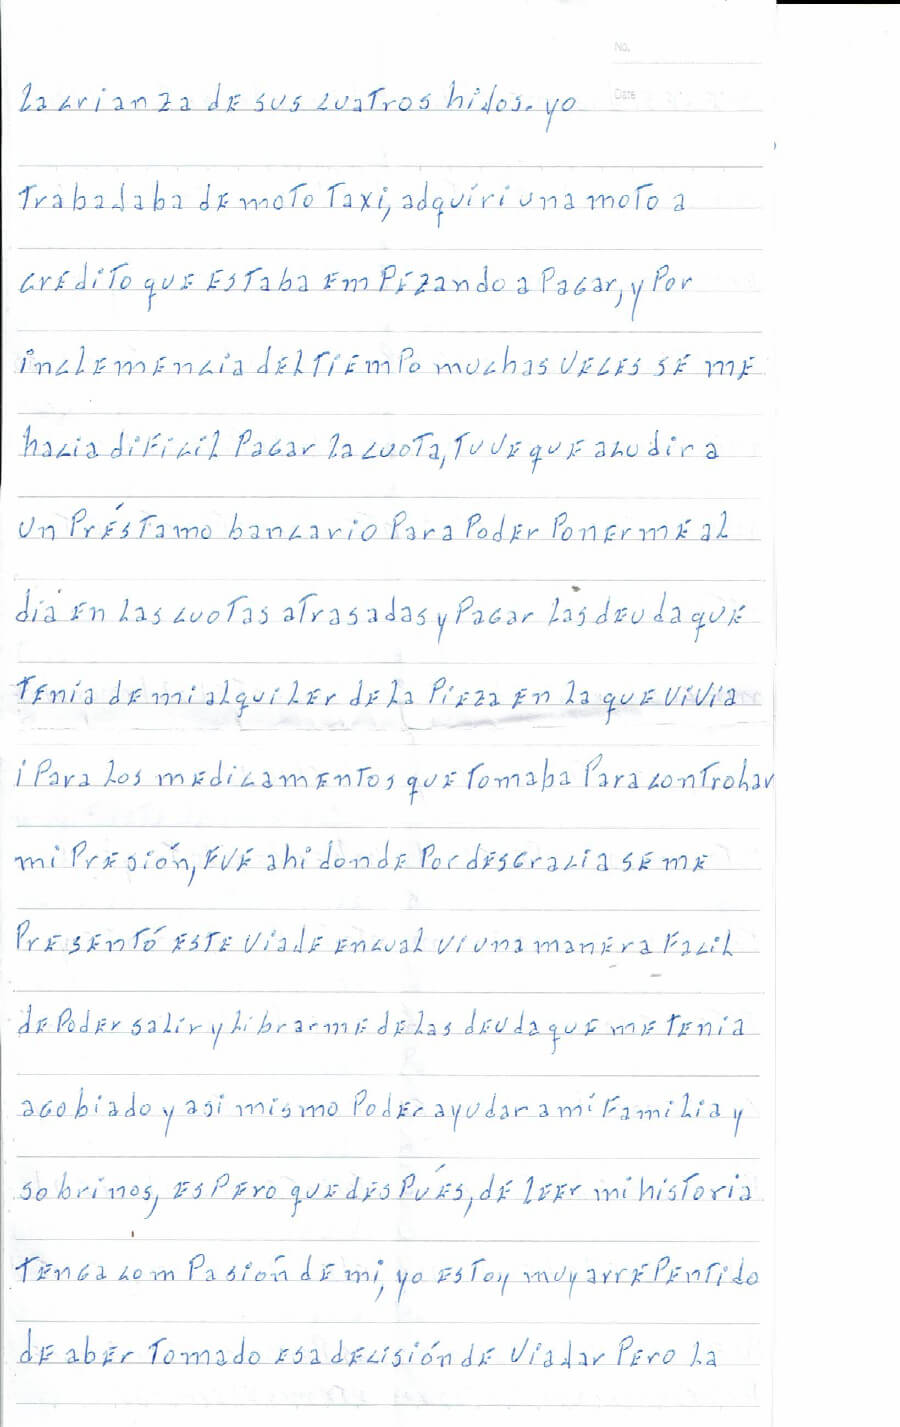 No.
Date
la crianza de sus cuatros hijos. yo
Trabajaba de moto Taxi, adquíri una moto a
crédito que estaba empézando a pagar, y por
inclemencia del tiempo muchas veces se me
hacia dificil pagar la cuota, tuve que acudir a
un préstamo bancario para poder ponerme al
dia en las cuotas atrasadas y pagar las deuda que
tenia de mi alquiler de la pieza en la que vivia
i para los medicamentos que tomaba para controlar
mi presión, fue ahi donde por desgracia se me
presentó este viaje en cual vi una manera facil
de poder salir y librarme de las deuda que me tenia
agobiado y asi mismo poder ayudar a mi familia y
sobrinos, espero que despúes, de leer mi historia
tenga compasión de mi, yo estoy muy arrepentido
de aber tomado esa decisión de viajar pero la